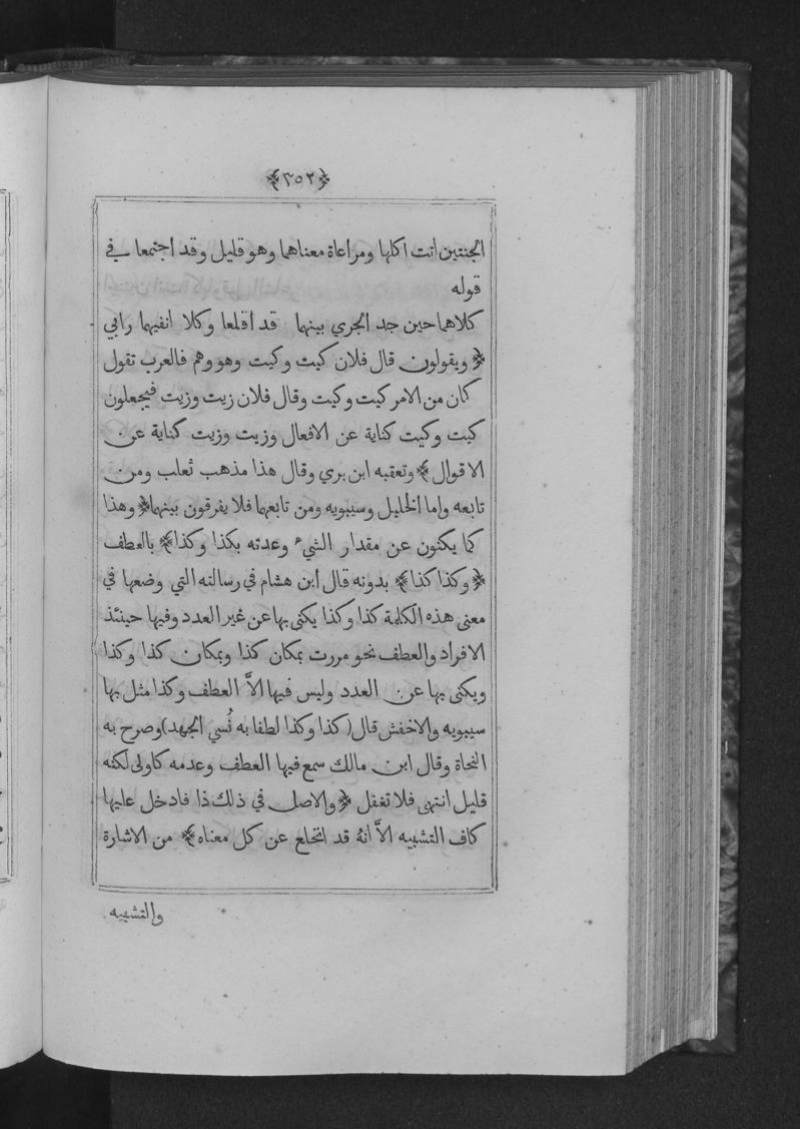 ﴿٣٥٢﴾
الجنتين اتت اكلها ومراعاة معناهما وهو قليل وقد اجتمعا في
قوله
كلاهما حين جد الجري بينهما قد اقلعا وكلا انفيهما رابي
﴿ ويقولون قال فلان كيت وكيت وهو وهم فالعرب تقول
كان من الامر كيت وكيت وقال فلان زيت وزيت فيجعلون
كيت وكيت كناية عن الافعال وزيت وزيت كناية عن
الاقوال ﴾ وتعقبه ابن بري وقال هذا مذهب ثعلب ومن
تابعه واما الخليل وسيبويه ومن تابعهما فلا يفرقون بينهما ﴿ وهذا
كما يكنون عن مقدار الشيء وعدته بكذا وكذا ﴾ بالعطف
﴿ وكذا كذا ﴾ بدونه قال ابن هشام في رسالته التي وضعها في
معنى هذه الكلمة كذا وكذا يكنى بها عن غير العدد وفيها حينئذ
الافراد والعطف نحو مررت بمكان كذا وبمكان كذا وكذا
ويكنى بها عن العدد وليس فيها الاَّ العطف وكذا مثل بها
سيبويه والاخفش قال (كذا وكذا لطفا به نُسي الجهد) وصرح به
النحاة وقال ابن مالك سمع فيها العطف وعدمه كاولى لكنه
قليل انتهى فلا تغفل ﴿ والاصل في ذلك ذا فادخل عليها
كاف التشبيه الاَّ انهُ قد انخلع عن كل معناه ﴾ من الاشارة
والتشبيه